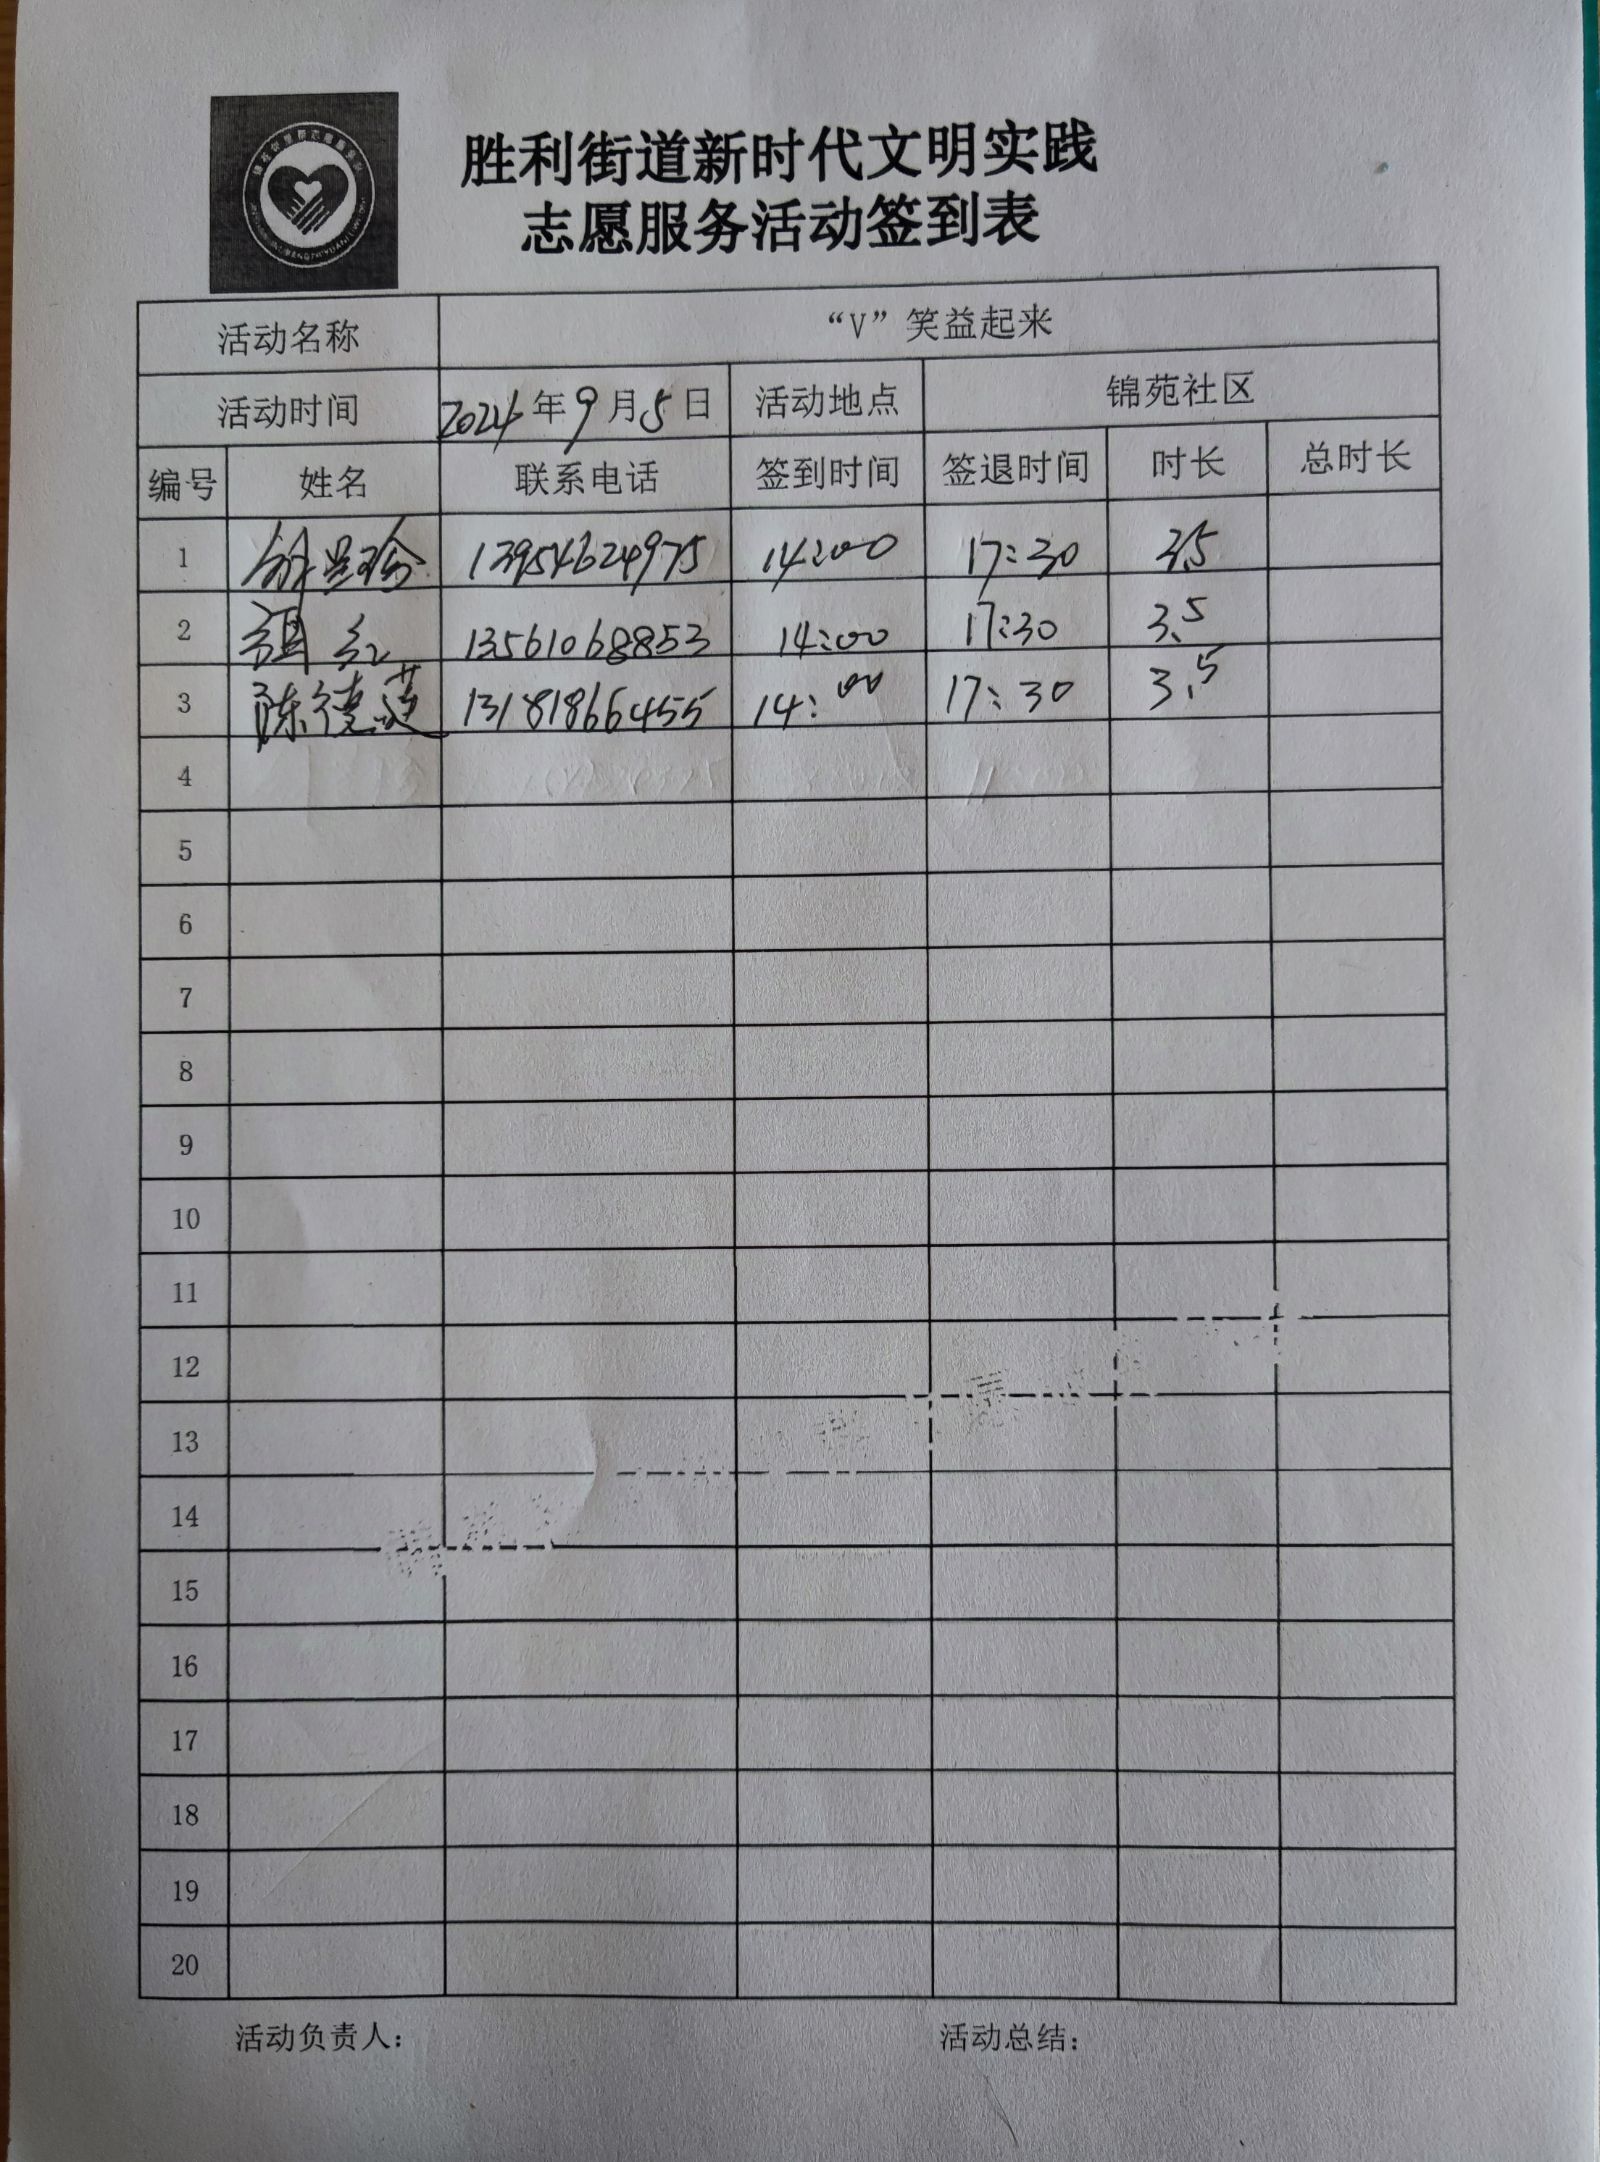 胜利街道新时代文明实践
志愿服务活动签到表
活动名称 “V”笑益起来
活动时间 2024年9月5日 活动地点 锦苑社区
编号 姓名 联系电话 签到时间 签退时间 时长 总时长
1 13954624975 14:00 17:30 3.5
2 红 13561068853 14:00 17:30 3.5
3 陈德莲 13181866455 14:00 17:30 3.5
4
5
6
7
8
9
10
11
12
13
14
15
16
17
18
19
20
活动负责人: 活动总结: